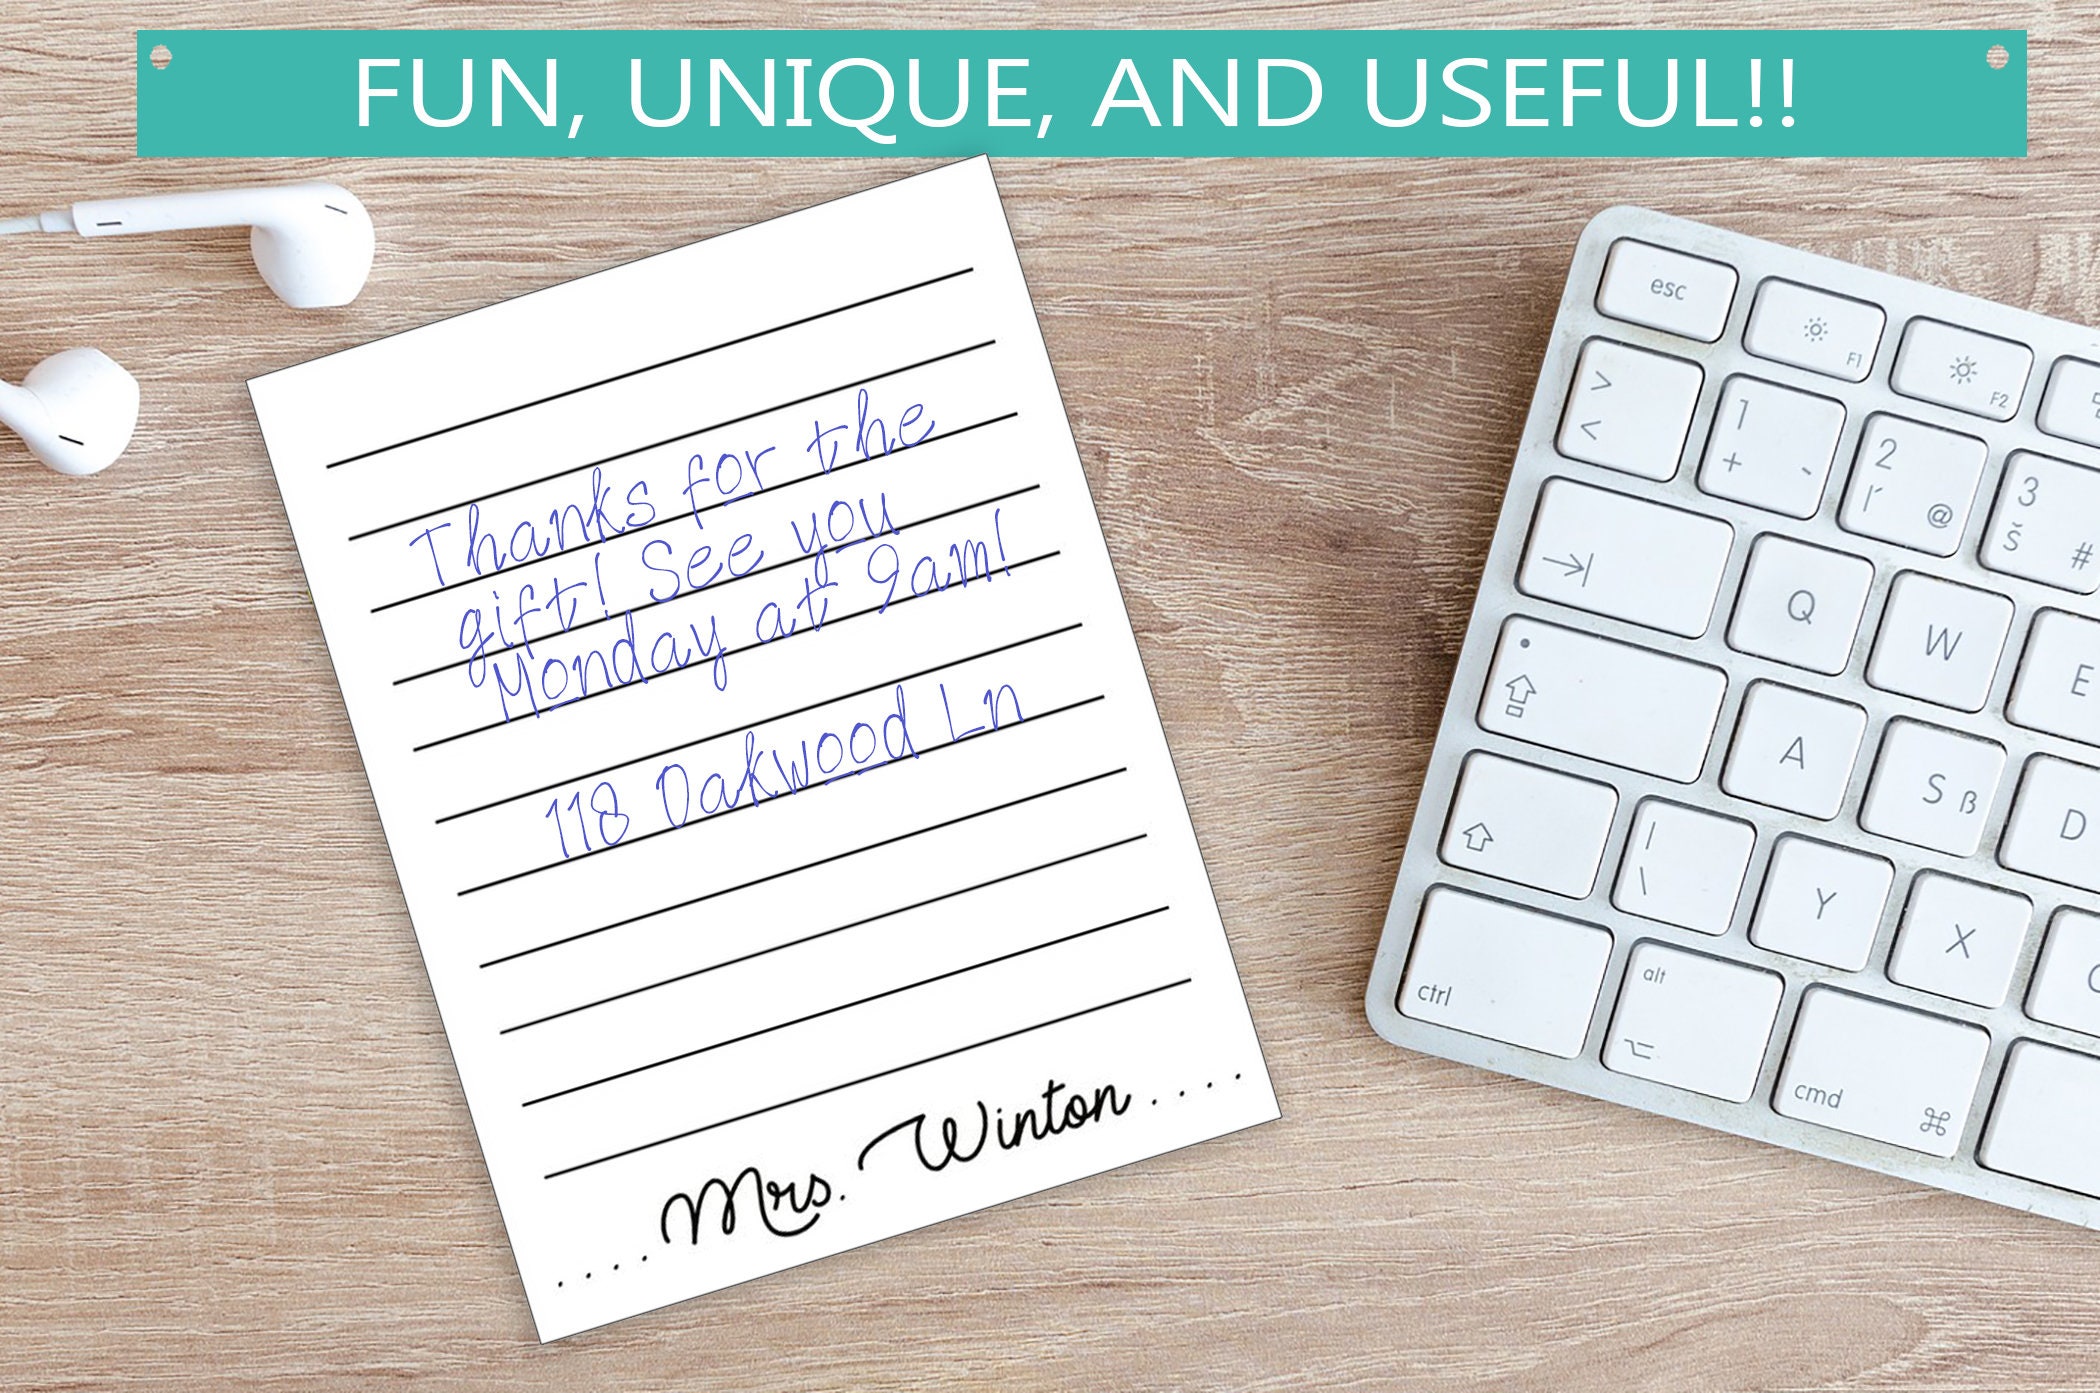 FUN, UNIQUE, AND USEFUL!!
Thanks for the
gift! See you
Monday at 9am!
118 Oakwood Ln
....Mrs. Winton....
esc
F1
F2
>
<
1
+ `
2
ľ @
3
š #
Q
W
E
A
S ß
D
|
\
Y
X
ctrl
alt
cmd
⌘